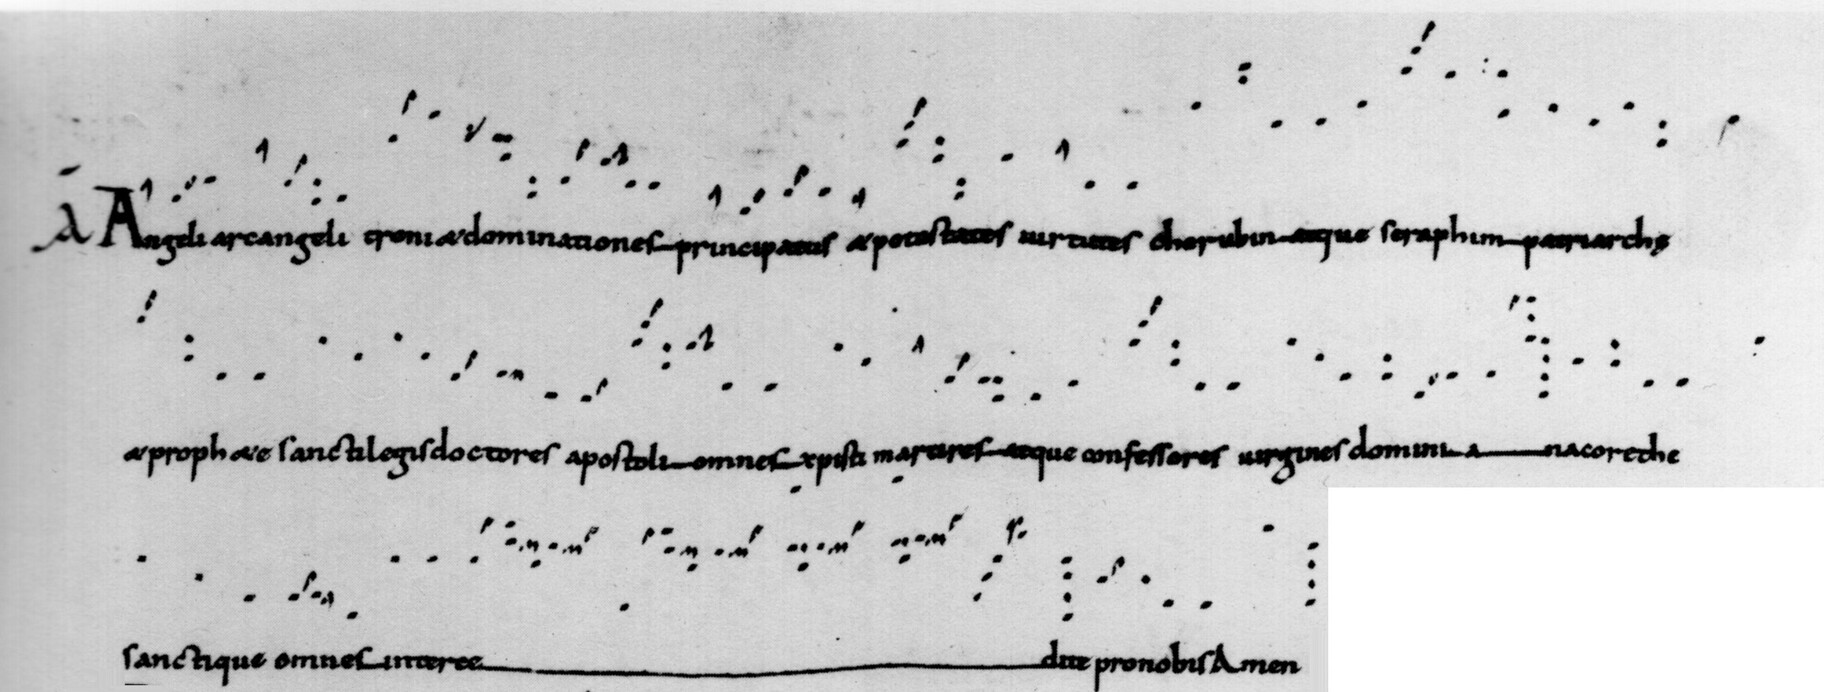 A Angeli arcangeli troni & dominationes principatus & potestates uirtutes cherubin atque seraphim patriarchę
& proph&e sancti legis doctores apostoli omnes xpisti martires atque confessores uirgines domini anacorethe
sanctique omnes intercedite pro nobis Amen